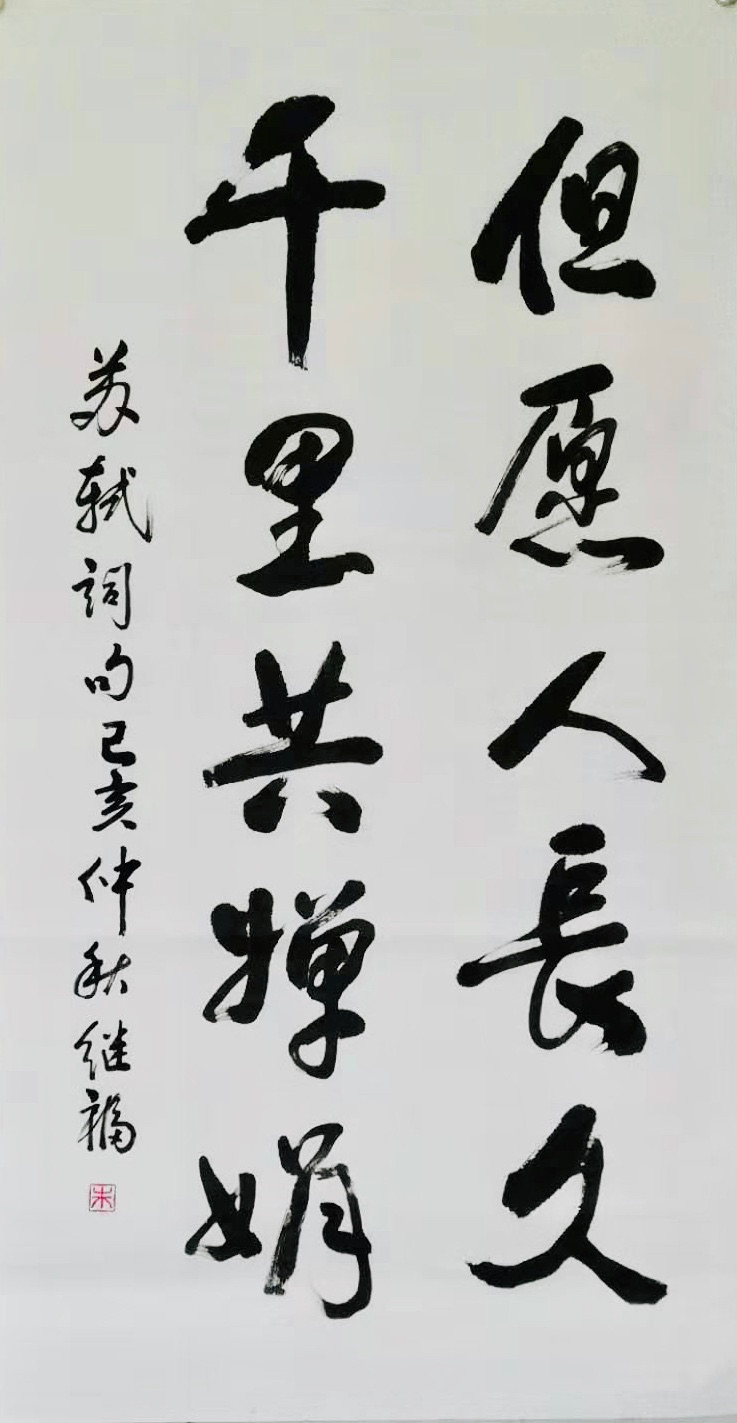 但愿人長久
千里共婵娟
苏轼詞句己亥仲秋继福
朱